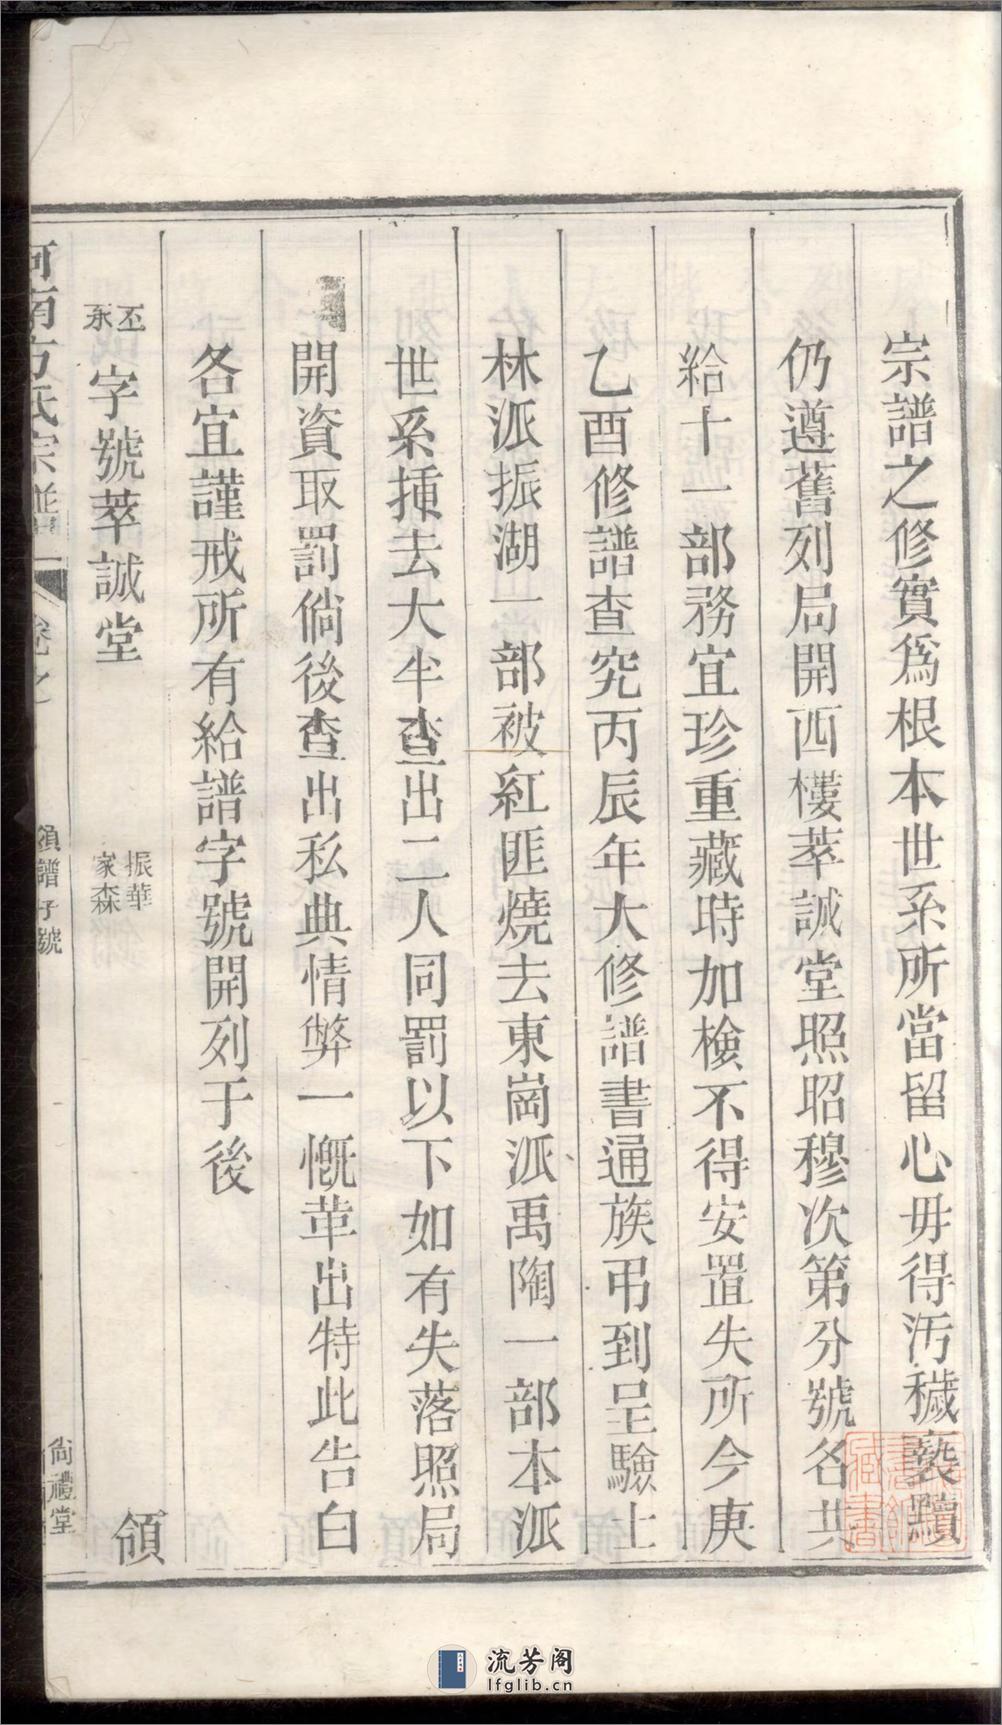 宗譜之修實爲根本世系所當留心毋得汚穢褻黷
仍遵舊列局開西樓萃誠堂照昭穆次第分號名共
給十一部務宜珍重藏時加檢不得安置失所今庚
乙酉修譜查究丙辰年大修譜書通族弔到呈驗上
林派振湖一部被紅匪燒去東崗派禹陶一部本派
世系揷去大半查出二人同罰以下如有失落照局
開資取罰倘後查出私典情弊一慨革出特此告白
各宜謹戒所有給譜字號開列于後
丕永字號萃誠堂 振華 家森 領
河南方氏宗譜 卷之 領譜字號 尙禮堂
流芳阁
lfglib.cn